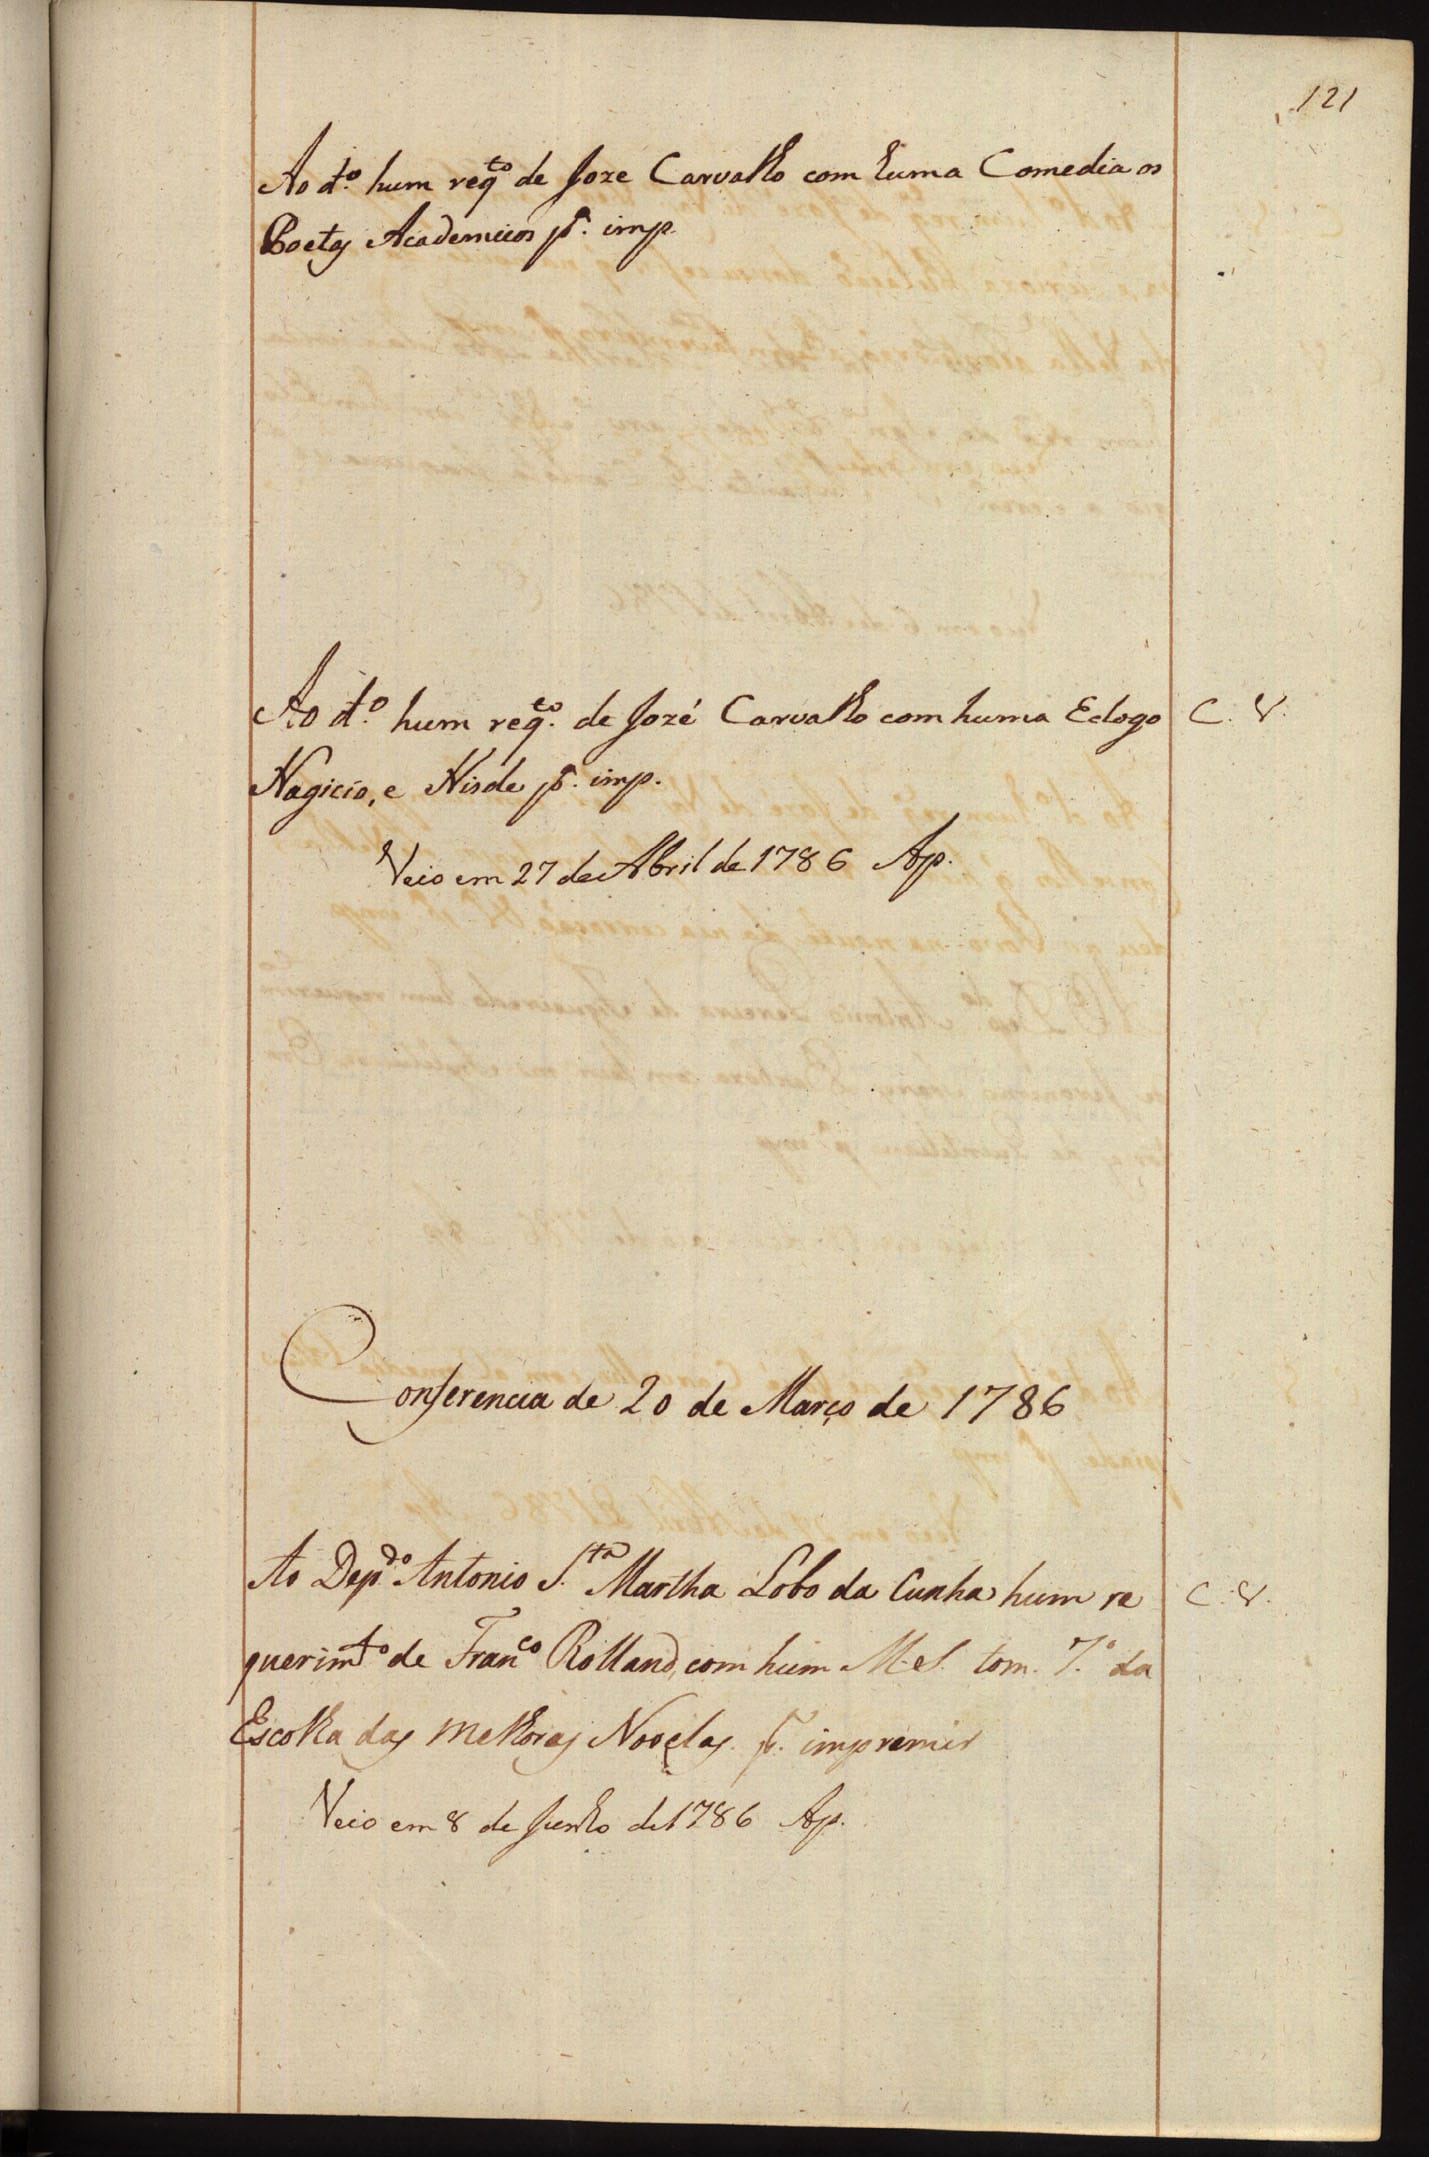 121
Ao d.º hum req.to de Joze Carvalho com huma Comedia os
Poetas Academicos p.ª imp.
Ao d.º hum req.to de Jozé Carvalho com huma Eclogo C. V.
Nagicio, e Nisde p.ª imp.
Veio em 27 de Abril de 1786 Ap.
Conferencia de 20 de Março de 1786
Ao Dep.do Antonio S.ta Martha Lobo da Cunha hum re C. V.
querim.to de Fran.co Rolland, com hum M.S. tom. 7.º da
Escolha das melhoras Novelas p.ª impremir
Veio em 8 de Junho de 1786 Ap.